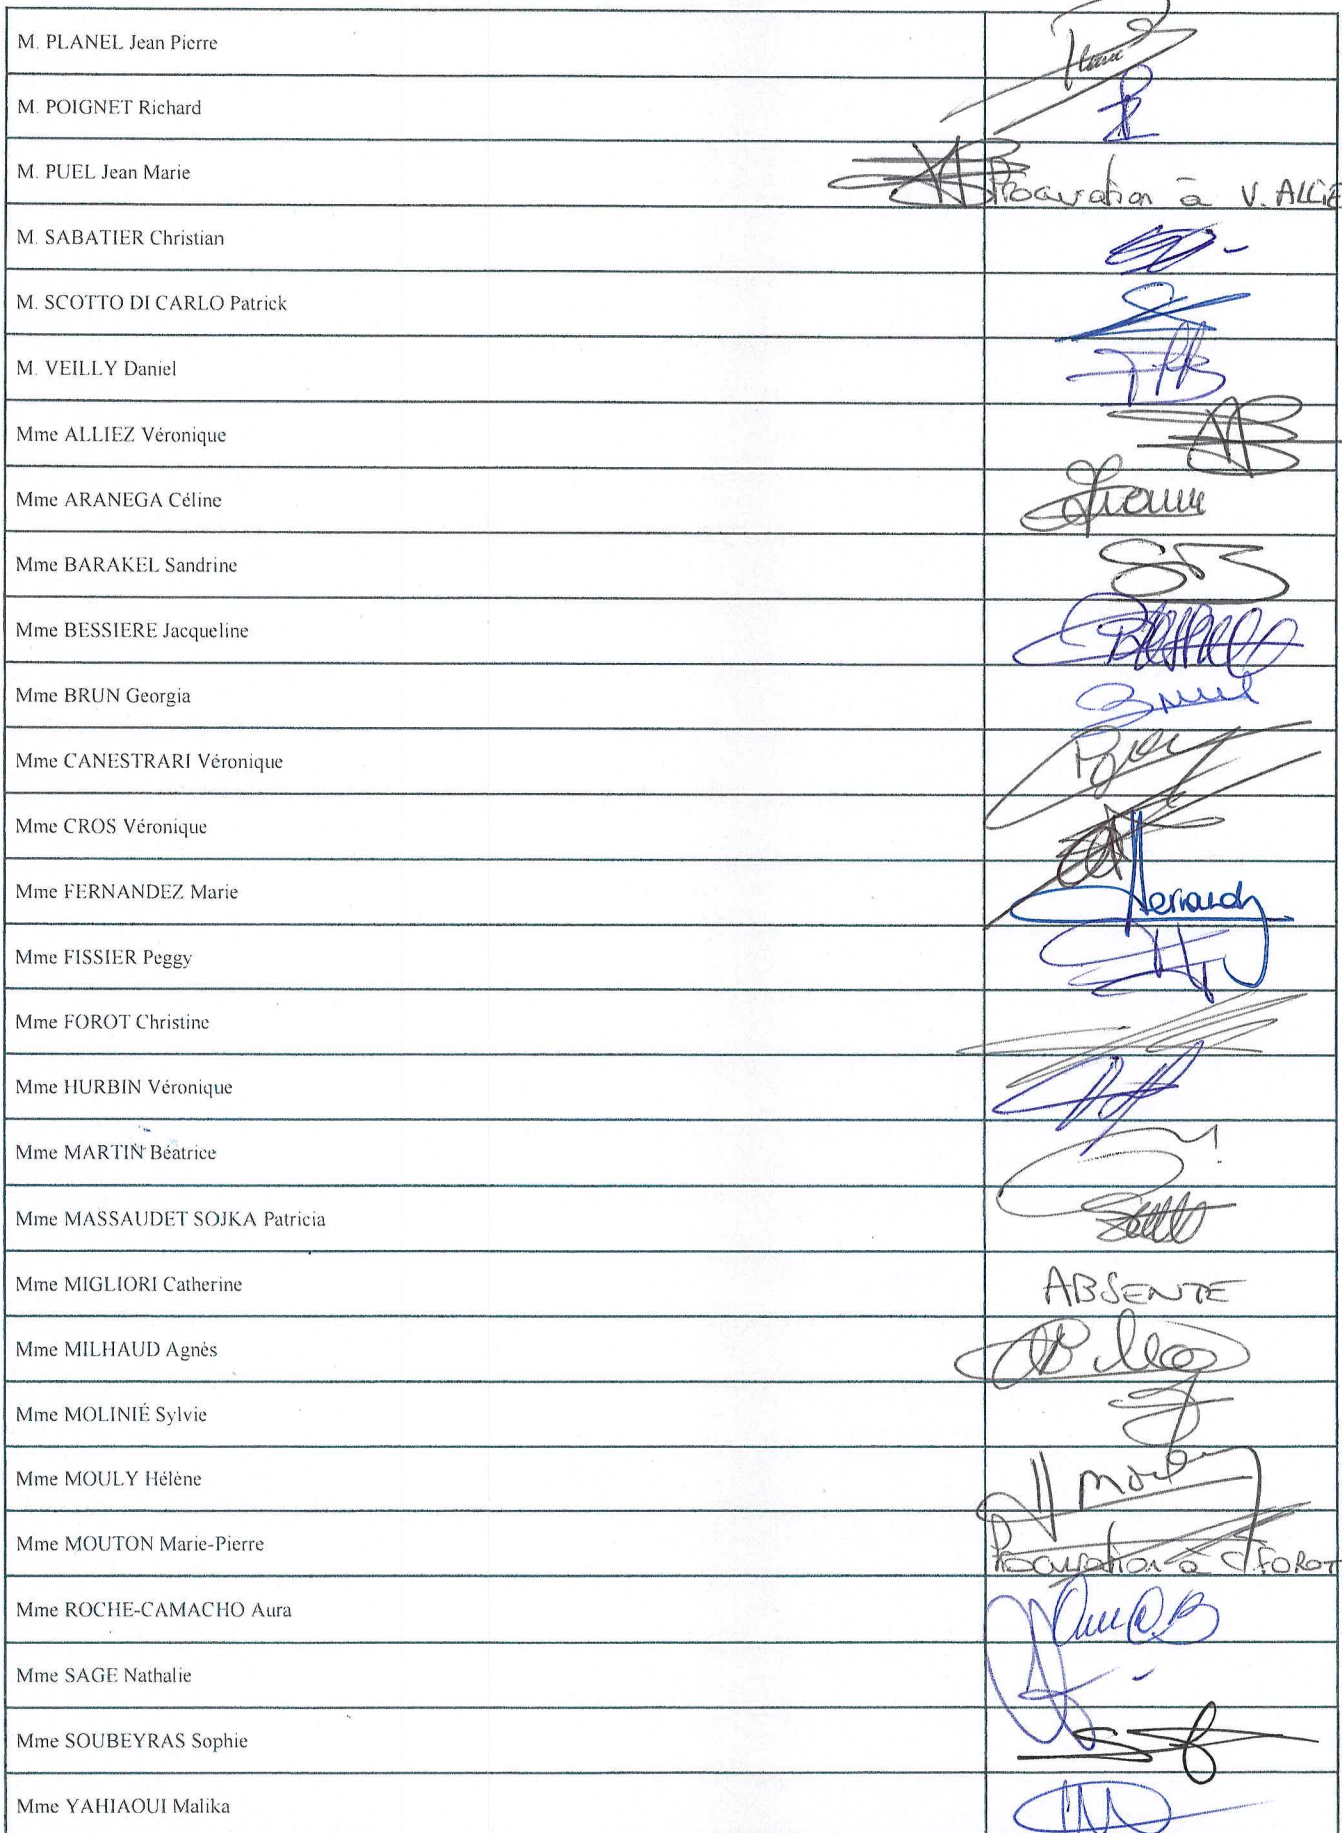 M. PLANEL Jean Pierre
M. POIGNET Richard
M. PUEL Jean Marie
Procuration à V. ALLIE
M. SABATIER Christian
M. SCOTTO DI CARLO Patrick
M. VEILLY Daniel
Mme ALLIEZ Véronique
Mme ARANEGA Céline
Mme BARAKEL Sandrine
Mme BESSIERE Jacqueline
Mme BRUN Georgia
Mme CANESTRARI Véronique
Mme CROS Véronique
Mme FERNANDEZ Marie
Mme FISSIER Peggy
Mme FOROT Christine
Mme HURBIN Véronique
Mme MARTIN Béatrice
Mme MASSAUDET SOJKA Patricia
Mme MIGLIORI Catherine
ABSENTE
Mme MILHAUD Agnès
Mme MOLINIÉ Sylvie
Mme MOULY Hélène
Mme MOUTON Marie-Pierre
Procuration à C FOROT
Mme ROCHE-CAMACHO Aura
Mme SAGE Nathalie
Mme SOUBEYRAS Sophie
Mme YAHIAOUI Malika